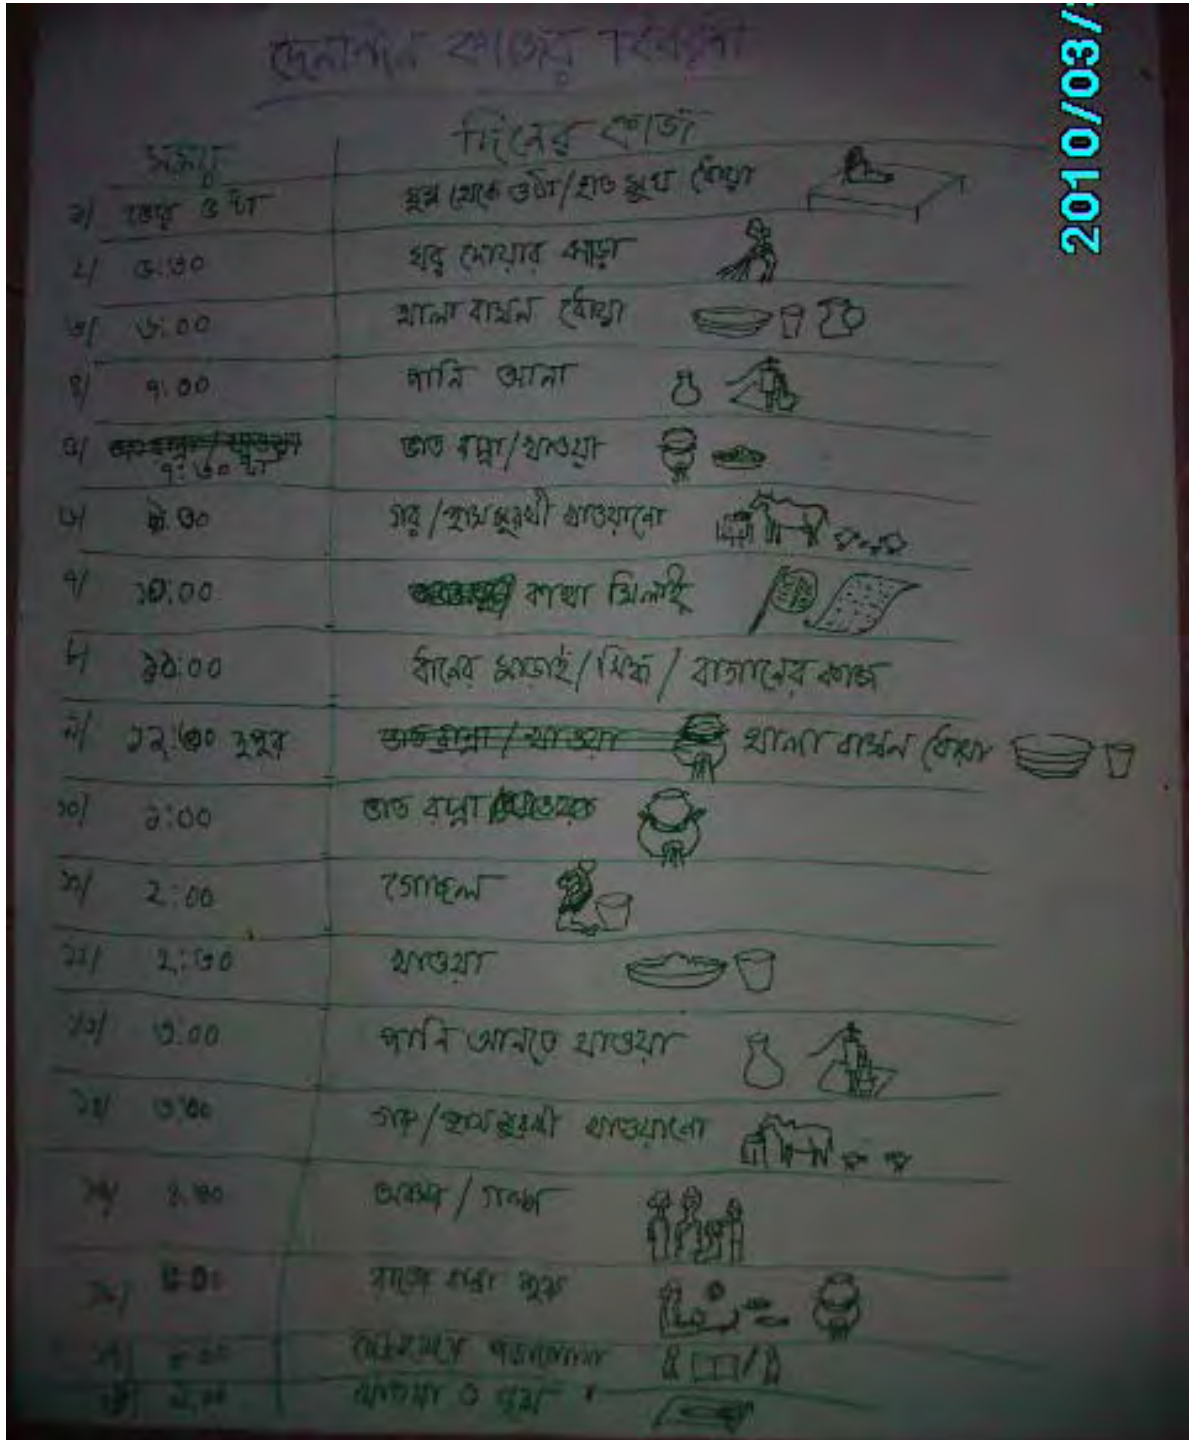 দৈনন্দিন কাজের বিবরনী
সময় দিনের কাজ
১/ ভোর ৫ টা ঘুম থেকে ওঠা/হাত মুখ ধোয়া
২/ ৫:৩০ ঘর দোয়ার ঝাড়া
৩/ ৬:০০ থালা বাসন ধোয়া
৪/ ৭:০০ পানি আনা
৫/ ৭:৩০ টা ভাত রান্না/খাওয়া
৬/ ৯:৩০ গরু/হাসমুরগী খাওয়ানো
৭/ ১০:০০ কাথা সিলাই
৮/ ১১:০০ ধানের মাড়াই/সিদ্ধ/বাগানের কাজ
৯/ ১২:৩০ দুপুর থালা বাসন ধোয়া
১০/ ১:০০ ভাত রান্না
১১/ ২:০০ গোছল
১২/ ২:৩০ খাওয়া
১৩/ ৩:০০ পানি আনতে যাওয়া
১৪/ গরু/হাসমুরগী খাওয়ানো
১৫/ ৪:৩০ গল্প
১৬/ রান্না
১৭/ পড়াশোনা
১৮/ খাওয়া ও ঘুম
2010/03/